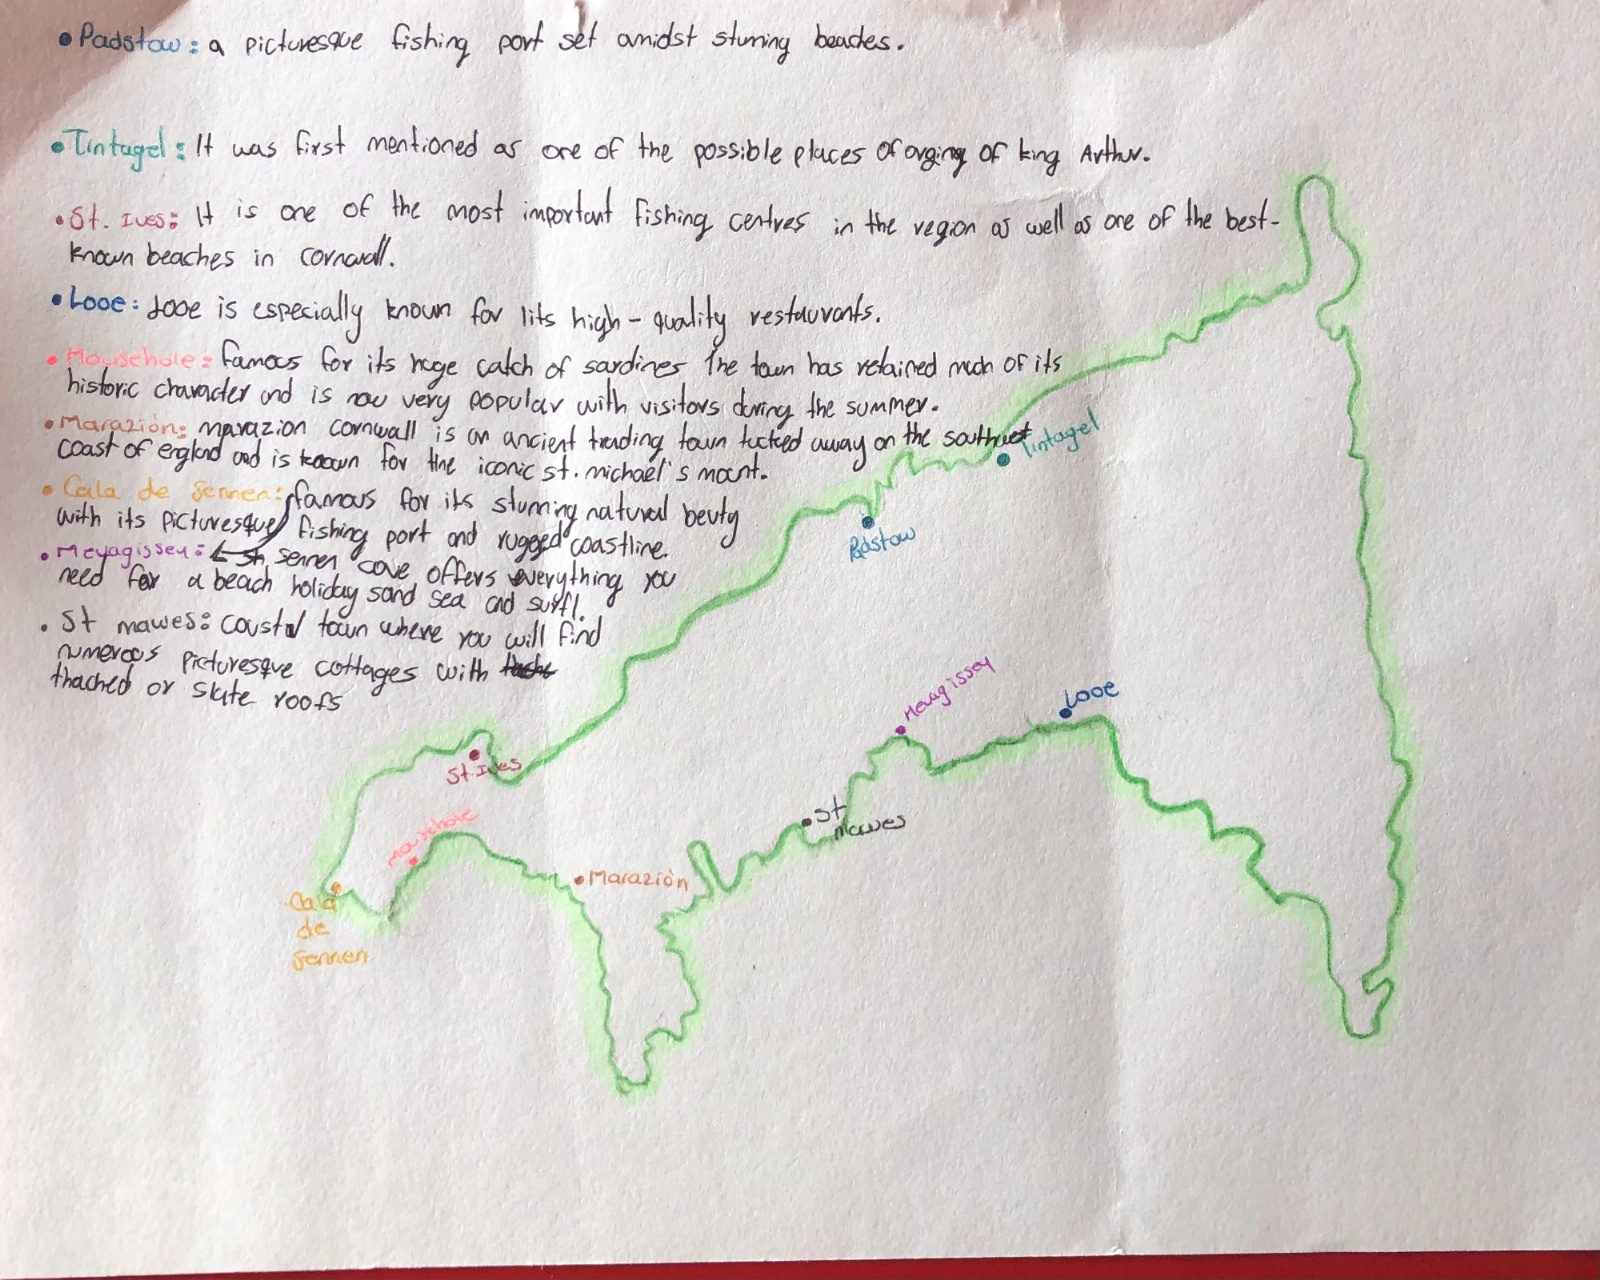 • Padstow: a picturesque fishing port set amidst stunning beaches.
• Tintagel: It was first mentioned as one of the possible places of of king Arthur.
• St. Ives: It is one of the most important fishing centres in the region as well as one of the best-
known beaches in cornwall.
• Looe: Looe is especially known for lits high-quality restaurants.
• Mousehole: famous for its huge catch of sardines The town has retained much of its
historic character and is now very popular with visitors during the summer.
• Marazión: marazion cornwall is an ancient trading town tucked away on the southwest
coast of england and is known for the iconic st. michael's mount.
• Cala de Sennen: famous for its stunning natural beuty
with its picturesque fishing port and rugged coastline.
• Mevagissey: sennen cove offers everything you
need for a beach holiday sand sea and surf!.
• St mawes: coustal town where you will find
numerous picturesque cottages with
thached or slate roofs
Tintagel
Padstow
Mevagissey
Looe
St. Ives
Mousehole
St
mawes
Marazión
Cala
de
Sennen